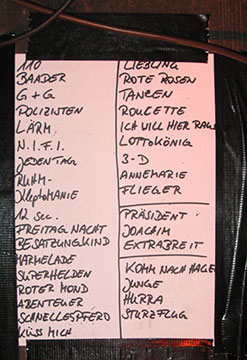 110
BAADER
G + G
POLIZISTEN
LÄRM
N.I.F.I.
JEDENTAG
RUHM-
KLEPTOMANIE
12 SEC.
FREITAG NACHT
BESATZUNGKIND
MARMELADE
SUPERHELDEN
ROTER MOND
ABENTEUER
SCHNELLESPFERD
KÜSS MICH
LIEBLING
ROTE ROSEN
TANZEN
ROULETTE
ICH WILL HIER RAUS
LOTTOKÖNIG
3-D
ANNEMARIE
FLIEGER
PRÄSIDENT
JOACHIM
EXTRABREIT
KOMM NACH HAGE
JUNGE
HURRA
STURZFLUG